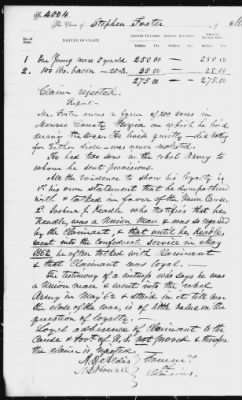 The Claim of Stephen Foster of
No. of Item. NATURE OF CLAIM. Amount Claimed. Amount Allowed. Amount Disallowed.
Dolls. Cts. Dolls. Cts. Dolls. Cts.
1 One Young mare 5 years old 250.00 — 250.00
2 100 lbs. bacon — 25.00 — 25.00
275.00 — 275.00
Claim rejected.
Report—
Mr. Foster owns a farm of 200 acres in
Thomas County Georgia on which he lived
during the war. He lived quietly — did voting
for neither side — was never molested.
He had two sons in the rebel Army to
whom he sent provisions.
As the evidence to show his loyalty is
1st his own statement that he sympathised
with & talked in favor of the Union Cause.
2d Joshua P. Headle, who testifies that he,
Headle, was a Union Man & was so regarded
by the Claimant, & that until he, Headle,
went into the Confederate service in May
1862 he often talked with Claimant
& that Claimant was loyal.—
The testimony of a witness who says he was
a Union man & went into the rebel
Army in May 62 & staid in it till near
the close of the war, is of little value on the
question of loyalty.
Loyal adherence of Claimant to the
Cause & Govt of U.S. not proved & therefore
the claim is rejected.
A. O. Aldis
J. B. Howell
Comrs.
of
Claims.